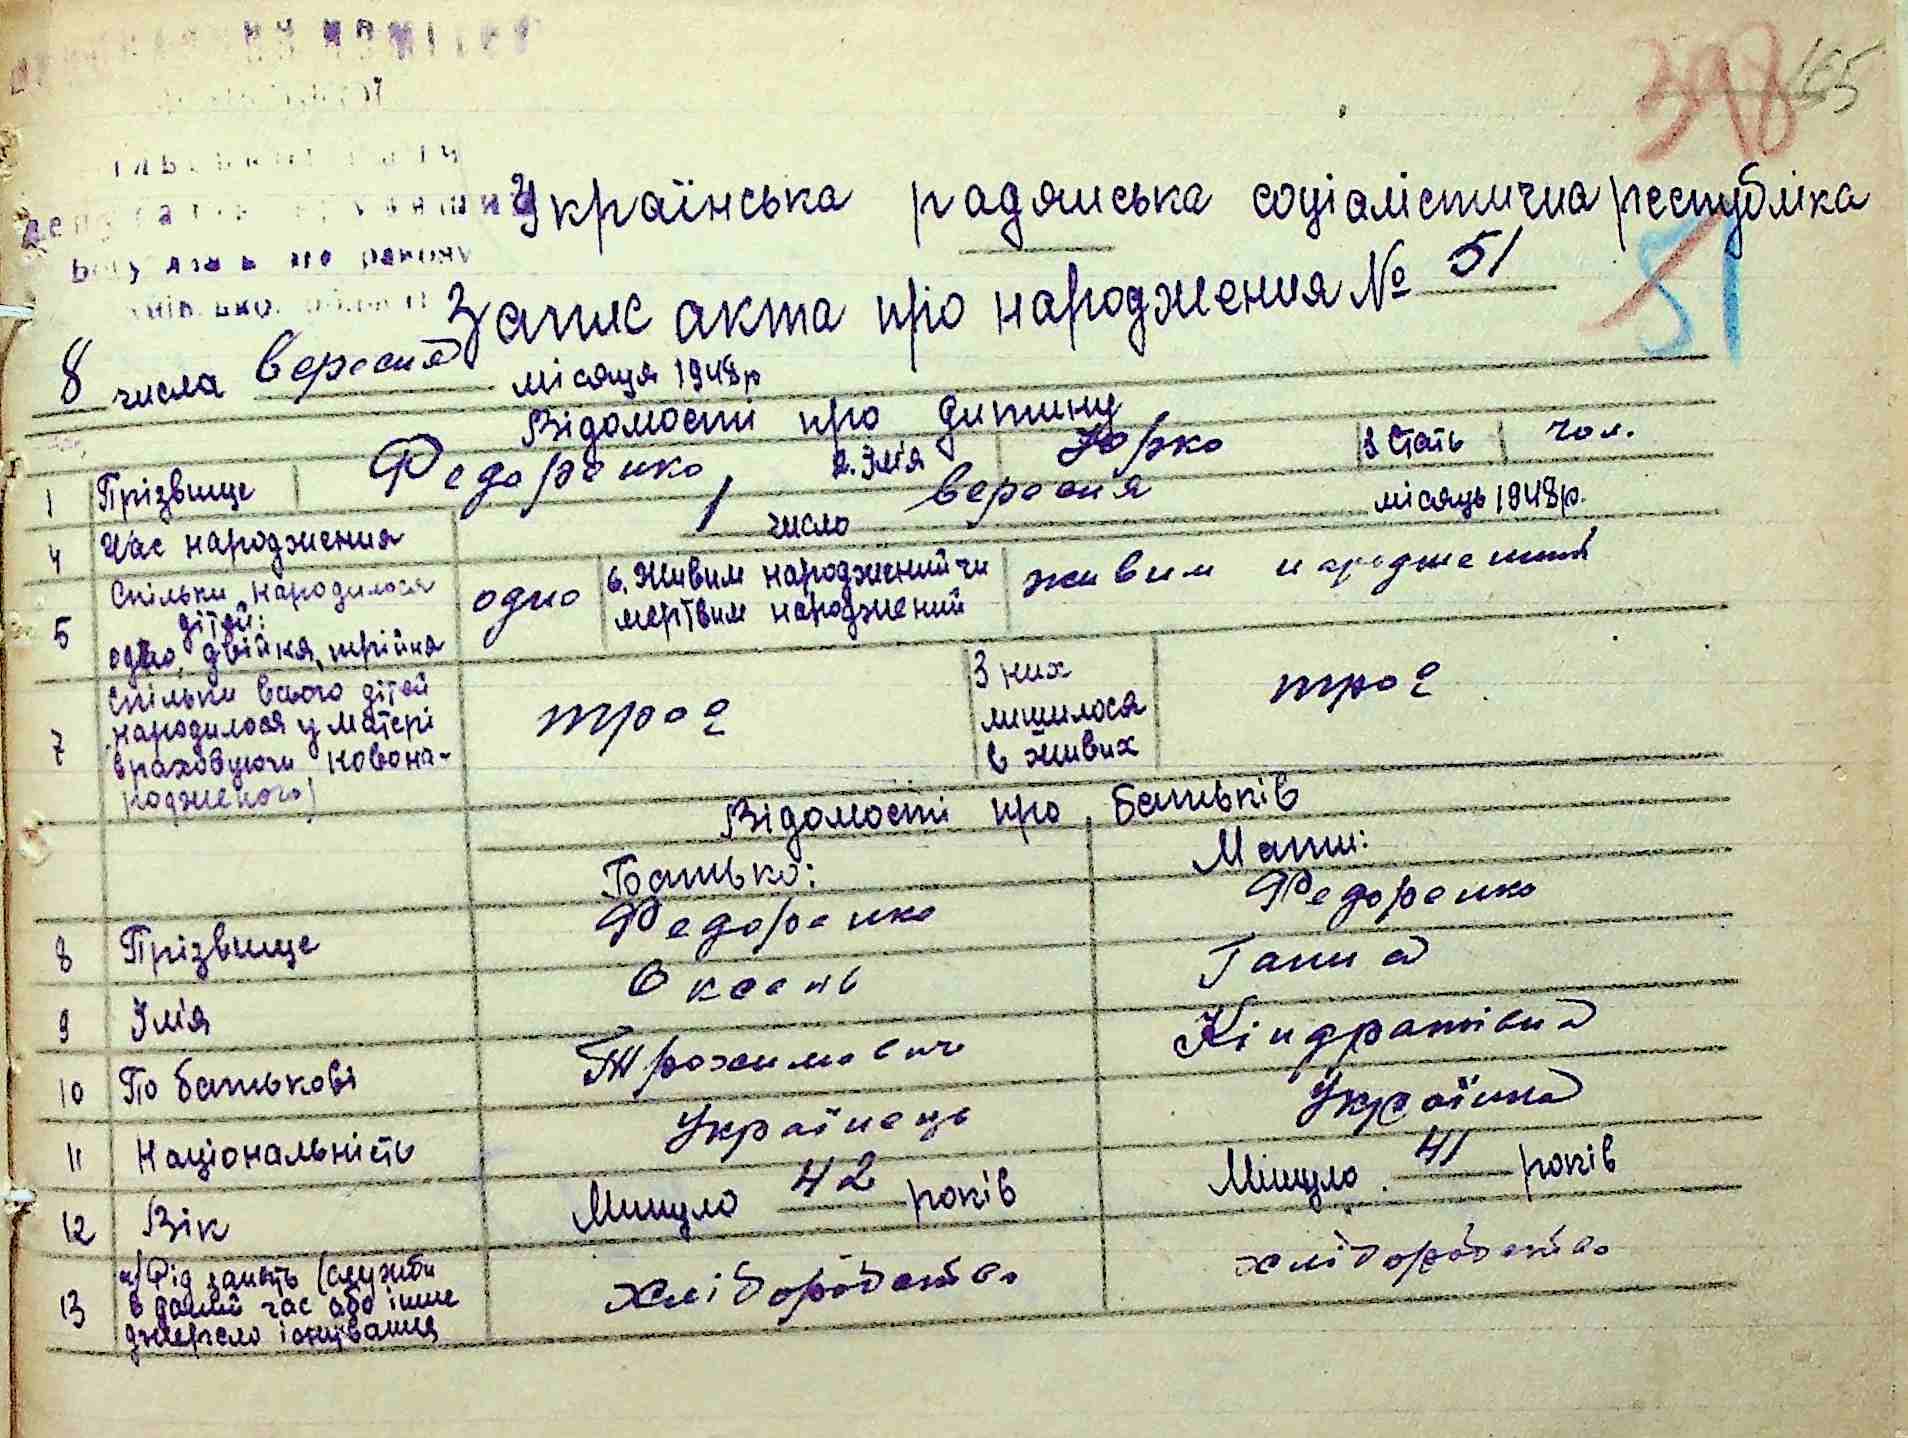 398 165
Українська радянська соціалістична республіка
Запис акта про народження № 51
51
8 числа вересня місяця 1948р
Відомості про дитину
1 Прізвище Федоренко 2. Імʼя Юрко 3 Стать чол.
4 Час народження 1 число вересня місяць 1948р.
5 Скільки народилося дітей: одно, двійня, трійня одно 6. Живим народжений чи мертвим народжений живим народжений
7 Скільки всього дітей народилося у матері враховуючи новонародженого) троє З них лишилося в живих троє
Відомості про батьків
Батько: Мати:
8 Прізвище Федоренко Федоренко
9 Імʼя Оксень Ганна
10 По батькові Трохимович Кіндратівна
11 Національність Українець Українка
12 Вік Минуло 42 років Минуло 41 років
13 а) Рід занять (служби в даний час або інше джерело існування хліборобство хліборобство